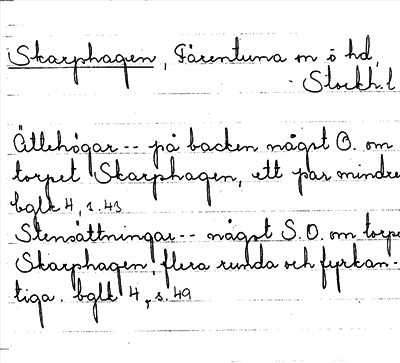 Skarphagen, Färentuna m ö hd,
Stockh.l
Ättehögar -- på backen något O. om
torpet Skarphagen, ett par mindre
bglk 4, s. 43
Stensättningar -- något S.O. om torpe
Skarphagen, flera runda och fyrkan-
tiga. bglk 4, s. 49